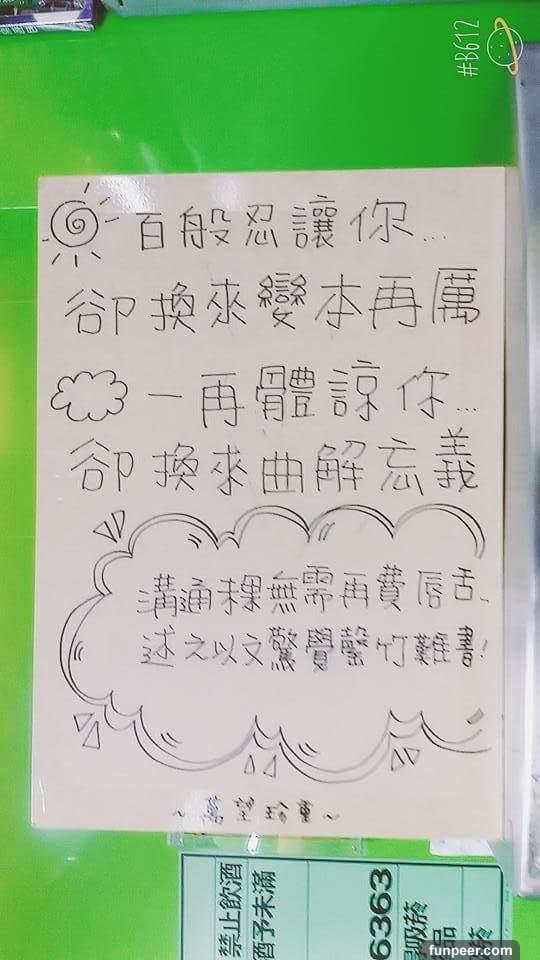 #B612
百般忍讓你...
卻換來變本再厲
一再體諒你...
卻換來曲解忘義
溝通裸無需再費唇舌..
述之以文驚覺罄竹難書!
~萬望珍重~
禁止飲酒
酒予未滿
6363
吸菸
品
菸
funpeer.com